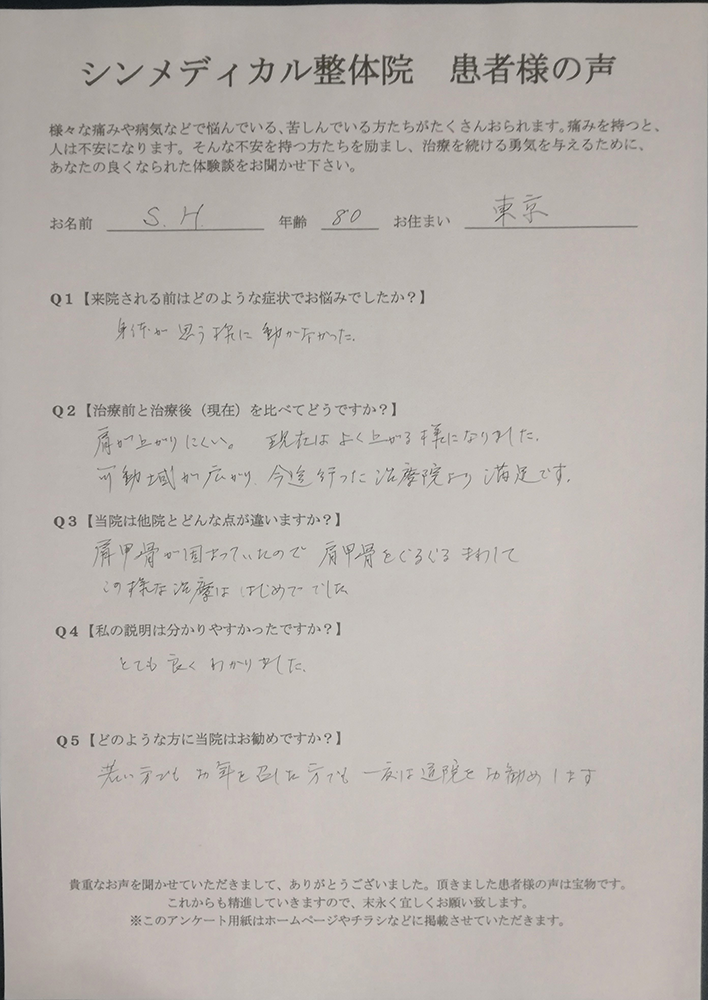 シンメディカル整体院　患者様の声
様々な痛みや病気などで悩んでいる、苦しんでいる方たちがたくさんおられます。痛みを持つと、
人は不安になります。そんな不安を持つ方たちを励まし、治療を続ける勇気を与えるために、
あなたの良くなられた体験談をお聞かせ下さい。
お名前　S.H.　年齢　80　お住まい　東京
Q1【来院される前はどのような症状でお悩みでしたか？】
身体が思う様に動かなかった。
Q2【治療前と治療後（現在）を比べてどうですか？】
肩が上がりにくい。現在はよく上がる様になりました。
可動域が広がり、今迄行った治療院より満足です。
Q3【当院は他院とどんな点が違いますか？】
肩甲骨が固まっていたので肩甲骨をぐるぐるまわして
この様な治療ははじめてでした
Q4【私の説明は分かりやすかったですか？】
とても良くわかりました。
Q5【どのような方に当院はお勧めですか？】
若い方でもお年を召した方でも一度は通院をお勧めします
貴重なお声を聞かせていただきまして、ありがとうございました。頂きました患者様の声は宝物です。
これからも精進していきますので、末永く宜しくお願い致します。
※このアンケート用紙はホームページやチラシなどに掲載させていただきます。